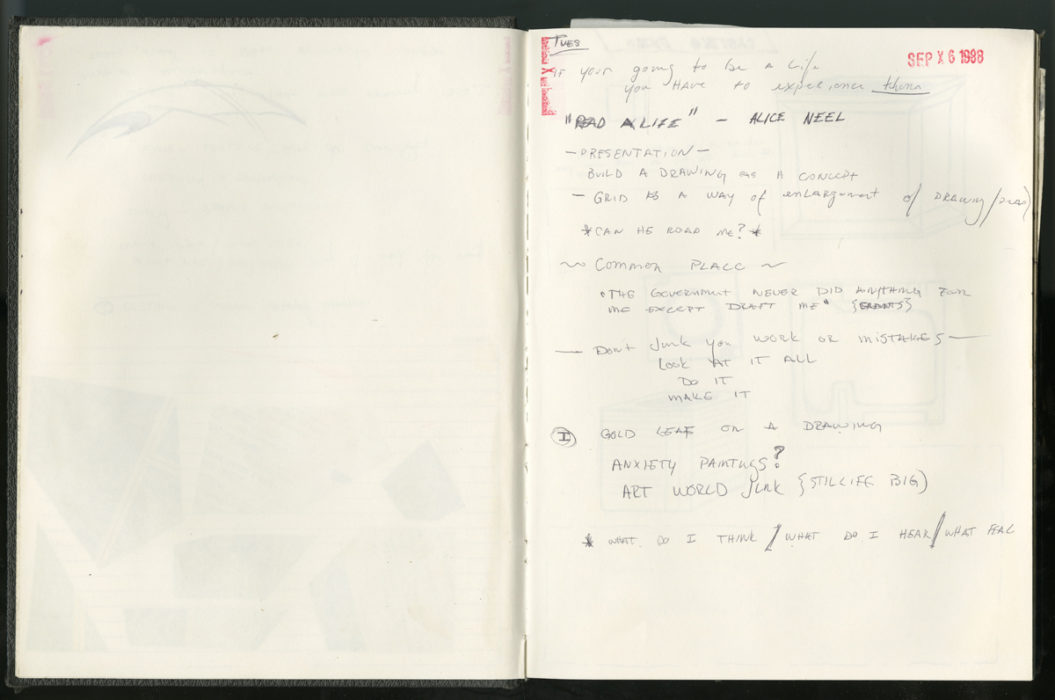 TUES
SEP 6 1988
IF your going to be a Life
you HAVE to experience them
"READ A LIFE" - ALICE NEEL
- PRESENTATION -
BUILD A DRAWING as A CONCEPT
- GRID AS A WAY of enlargment of DRAWING/
*CAN HE READ ME?*
~ Common PLACE ~
"THE GOVERNMENT NEVER DID ANYTHING FOR
ME EXCEPT DRAFT ME" {GRANTS}
— DON'T Junk you WORK OR MISTAKES —
Look AT IT ALL
DO IT
MAKE IT
I GOLD LEAF ON A DRAWING
ANXIETY PAINTINGS?
ART WORLD Junk {STILLIFE BIG)
* WHAT DO I THINK / WHAT DO I HEAR / WHAT FEAL